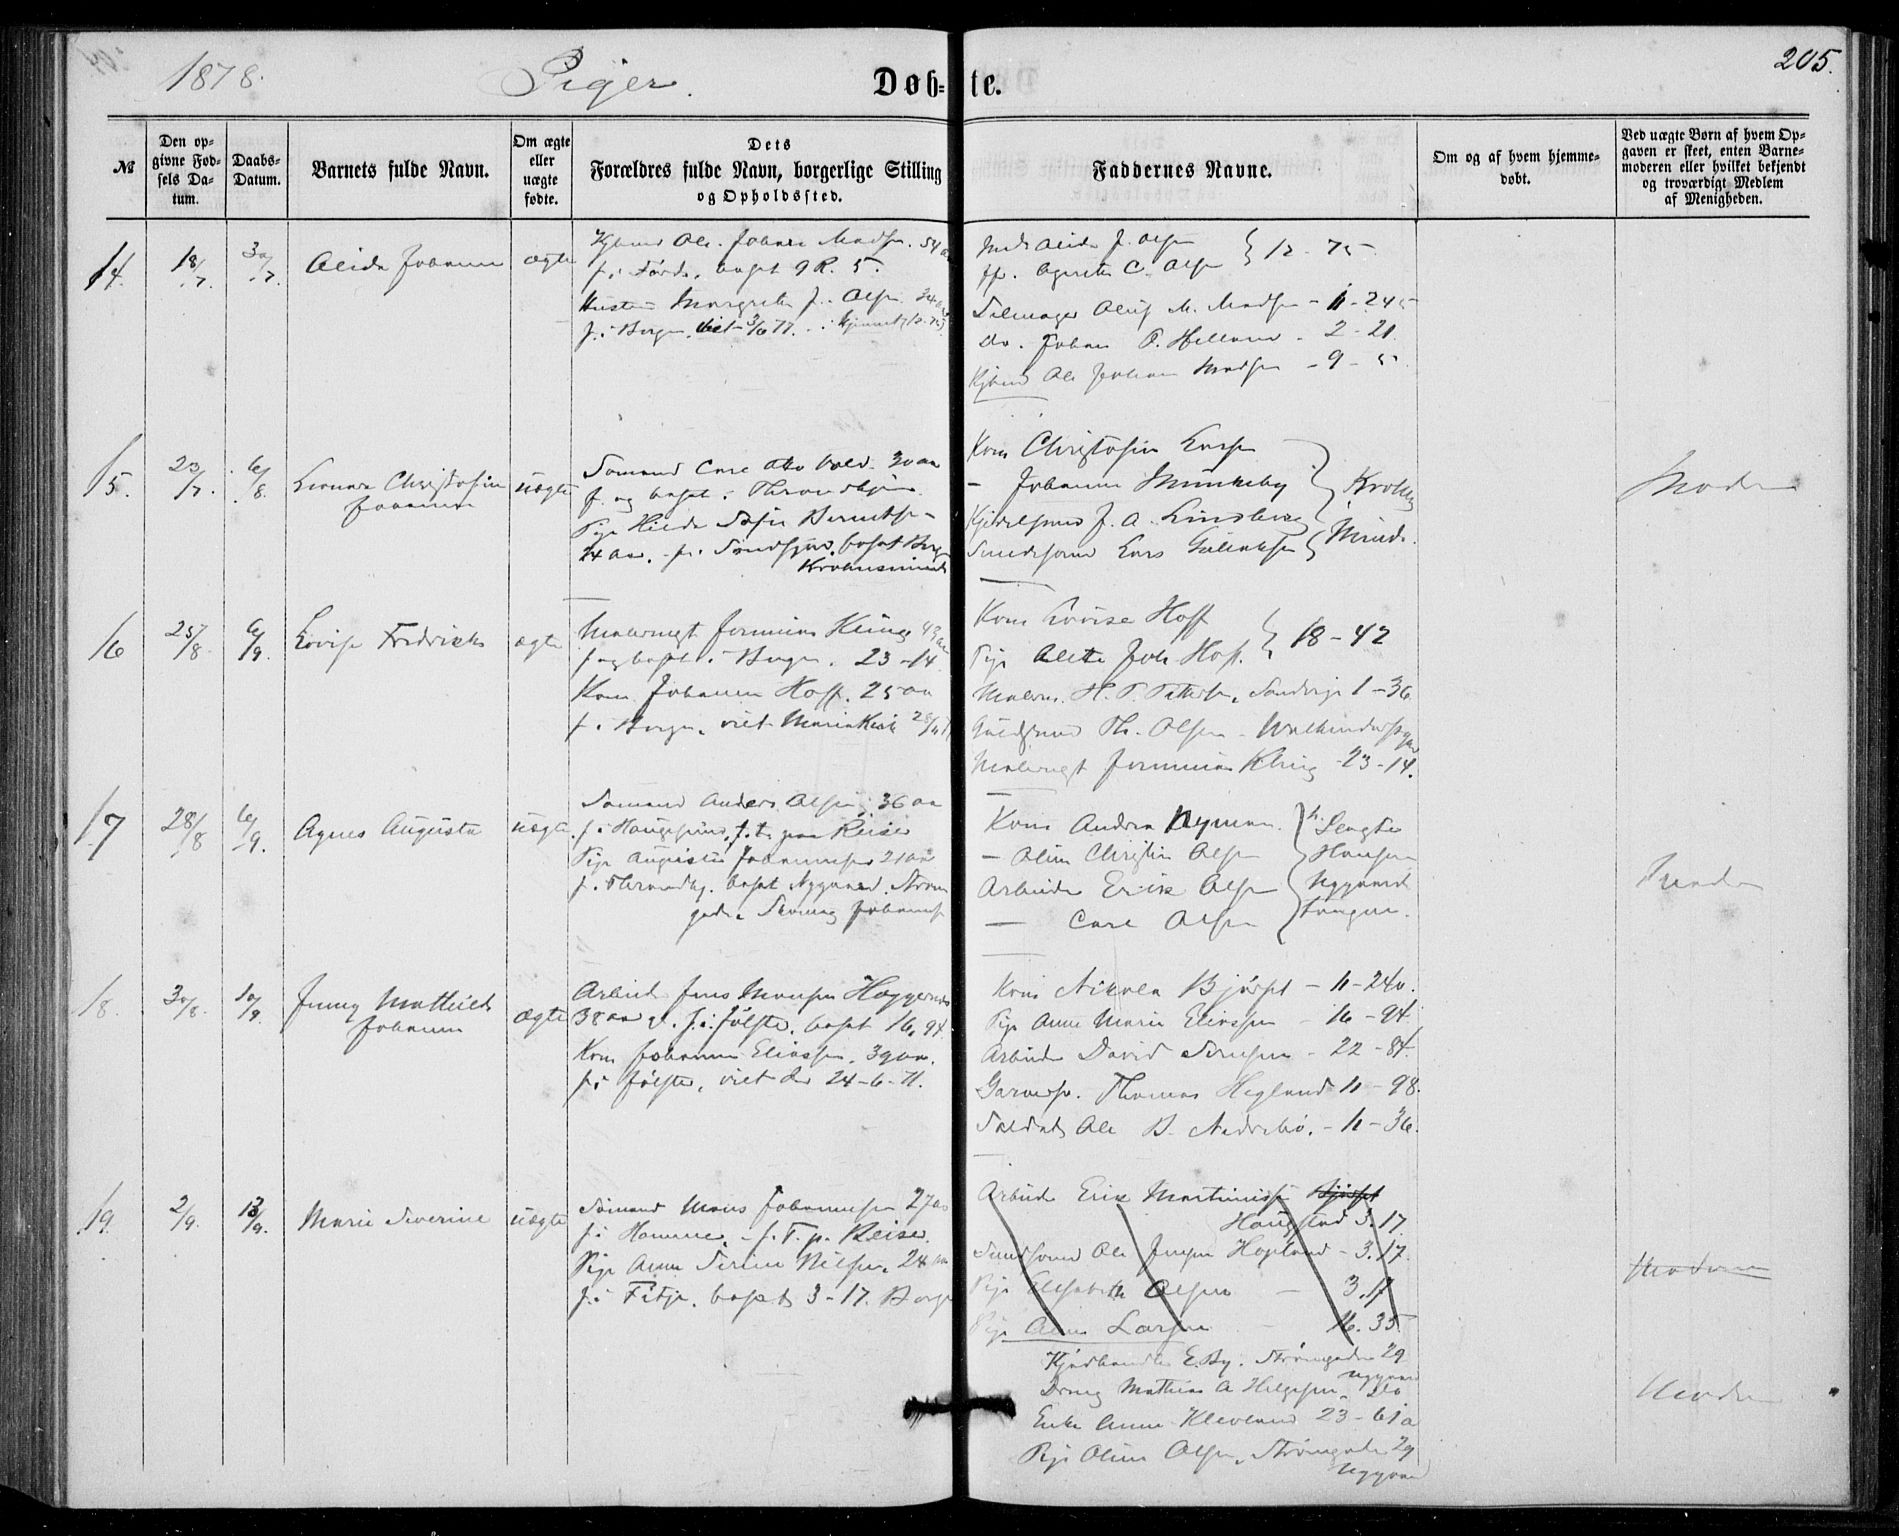 1878. Piger. Døb= te. 205.
№
Den op-
givne Fød-
sels Da-
tum.
Daabs-
Datum.
Barnets fulde Navn.
Om ægte
eller
uægte
fødte.
Dets
Forældres fulde Navn, borgerlige Stilling
og Opholdssted.
Faddernes Navne.
Om og af hvem hjemme-
døbt.
Ved uægte Børn af hvem Op-
gaven er skeet, enten Barne-
moderen eller hvilket bekjendt
og troværdigt Medlem
af Menigheden.
14. 18/7 30/7 Alida Johanne ægte
Ole Johan Madsen 54 aar
f. i Førde, bosat 9 R. 5.
Hustru Margrethe J. Olsen 34
f. i Bergen, viet 3/6 77.
Alida J. Olsen
Agnethe C. Olsen } 12-75
Seilmager Oluf M. Madsen - 11-245
do. Johan P. Helland - 2-21
Ole Johan Madsen - 9-5.
15. 23/7. 6/8. Christofine
Johanne uægte
Sømand Carl Otto Vold 30 aar
f. og bosat i Throndhjem
Pige Hilda Sofie Berntsen
24 aar, f. i Søndfjord, bosat Bergen
Krohnsminde
Kone Christofine Larsen
- Johanne Munkeby
J. A. Lindberg
Lars
Krohns
Minde.
Moder
16 25/8 6/9. Lovise Fredrikke ægte
Malersvgt Jeremias Kling 43 aar
f. og bosat i Bergen. 23-14
Kone Johanne Hoff. 25 aar
f. i Bergen, viet Mariakirk
Kone Lovise Hoff
Pige Alette Joh Hoff. } 18-42
H. P. Pettersen, Sandvige 1-36
Th. Olsen
Malersvgt Jeremias Kling - 23-14.
17 28/8 6/9. Agnes Augusta uægte
Sømand Anders Olsen, 36 aar
f. i Haugesund, f. t. paa Reise
Pige Augusta Johannesen 21 aar
f. i Throndhj. bosat Nygaard. Strøm
gaden Johannes
Kone Andrea Nyman
- Oline Christine Olsen
Arbeider Erik Olsen
- Carl Olsen
Hansen
Nygaard
Moder
18. 30/8. 10/9. Jenny Mathilde
Johanne ægte
Arbeid Jens Monsen
38 aar f. i Jølster, bosat 16, 94
Kone Johanne Eliassen. 39 aar.
f. i Jølster, viet der 24-6-71.
Kone Nikolea Bjørset - 11-240.
Pige Anne Marie Eliassen - 16-94
Arbeider David Sørensen - 22-84.
Garversv. Thomas Hegland 11-98.
Soldat Ole B. Nedrebø. - 11-36.
19. 2/9. 13/9. Marie Severine uægte
Sømand Mons Johannesen 27 aar
f. i Hammer, f. T. p. Reise.
Pige Anne Serine Nilsen, 24 aar
f. i Fitje, bosat 3-17. Bergen
Arbeider Erik Martinus Bjørset
Haugstad 3.17.
Ole Jensen Hopland - 3.17.
Pige Elisabeth Olsen - 3.17
Pige Anne Larsen - 16.35
Moderen
Kjødhandler E. By. Strømgaden 29
Nygaard
Dreng Mathias A Helgesen, do
Enke Anne Kleveland 23-61a
Pige Oline Olsen, Strømgaden 29
Nygaard
Moder